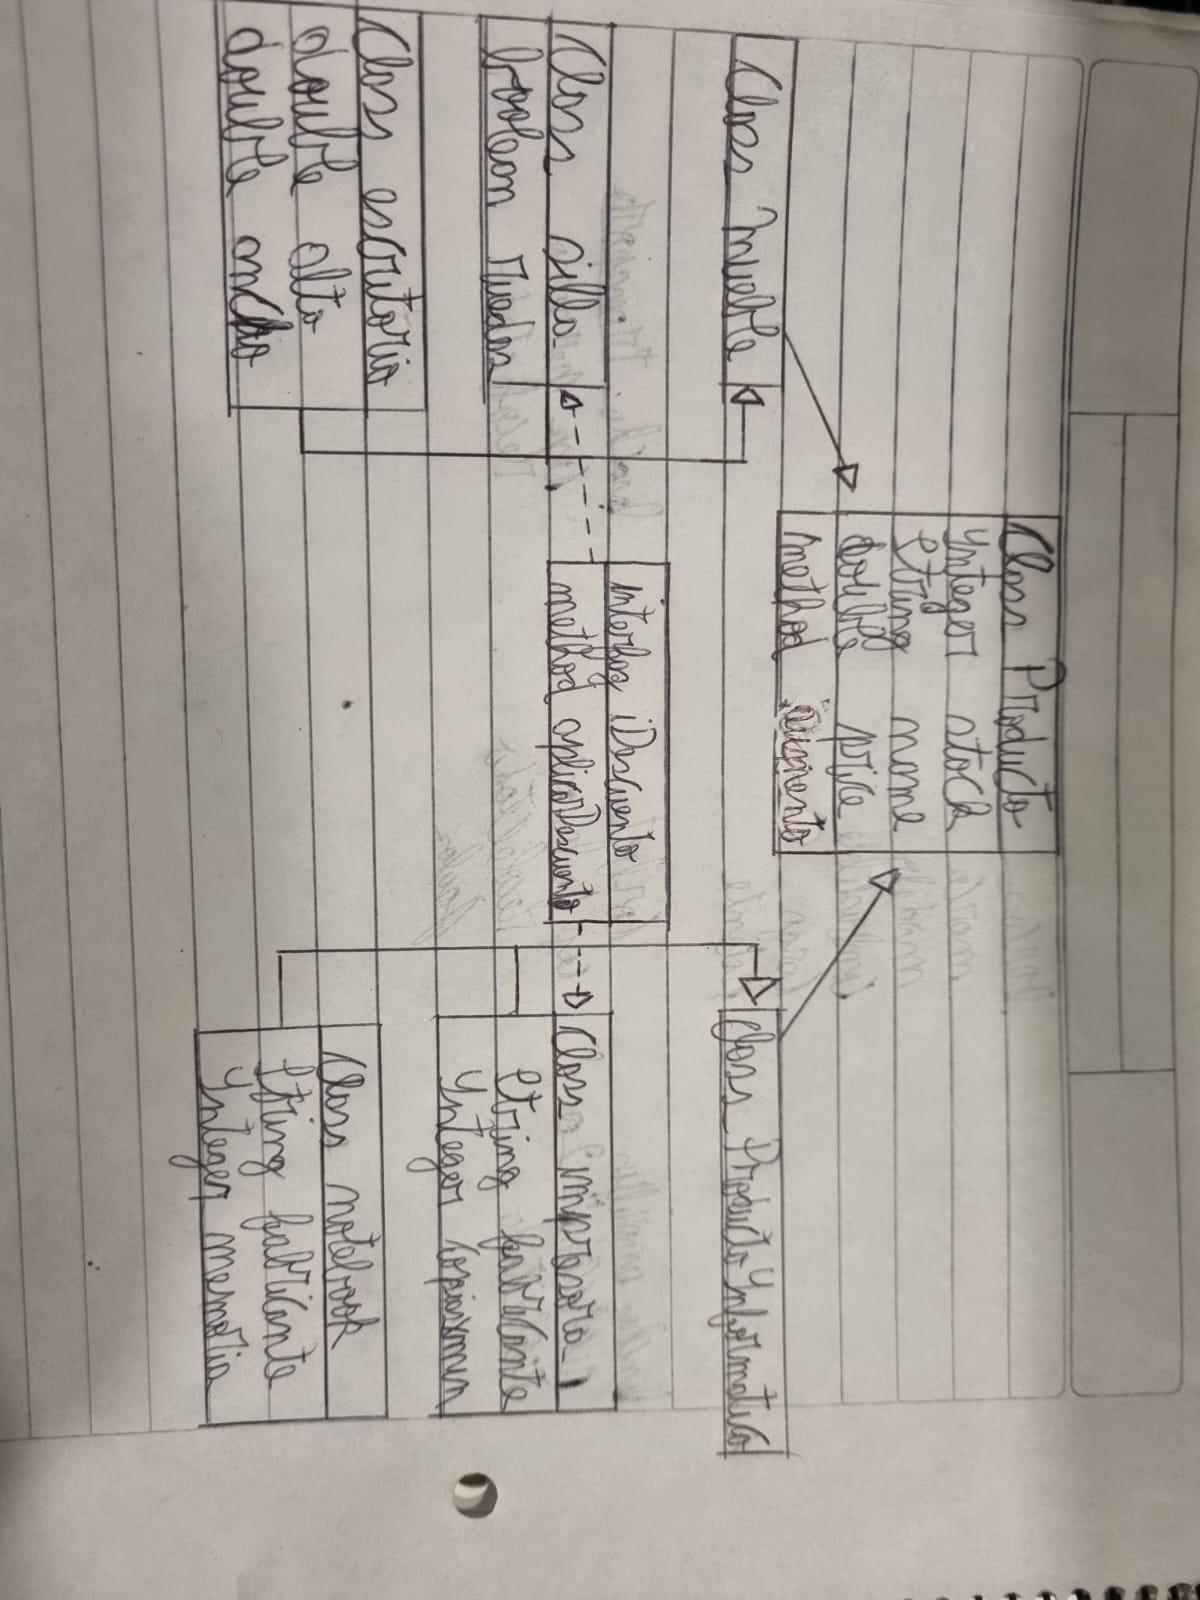 Class Producto
Integer stock
String nome
double price
method aumento
Class Mueble
Class ProductoInformatico
interfaz iDescuento
method aplicarDescuento
Class silla
boolean ruedas
Class impresora
String fabricante
Integer copiasxmin
Class escritorio
double alto
double ancho
Class notebook
String fabricante
Integer memoria